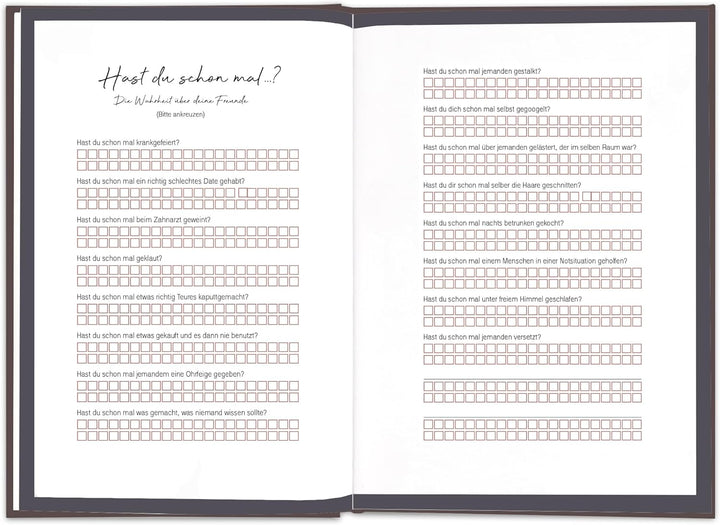 Hast du schon mal...?
Die Wahrheit über deine Freunde
(Bitte ankreuzen)
Hast du schon mal krankgefeiert?
Hast du schon mal ein richtig schlechtes Date gehabt?
Hast du schon mal beim Zahnarzt geweint?
Hast du schon mal geklaut?
Hast du schon mal etwas richtig Teures kaputtgemacht?
Hast du schon mal etwas gekauft und es dann nie benutzt?
Hast du schon mal jemandem eine Ohrfeige gegeben?
Hast du schon mal was gemacht, was niemand wissen sollte?
Hast du schon mal jemanden gestalkt?
Hast du dich schon mal selbst gegoogelt?
Hast du schon mal über jemanden gelästert, der im selben Raum war?
Hast du dir schon mal selber die Haare geschnitten?
Hast du schon mal nachts betrunken gekocht?
Hast du schon mal einem Menschen in einer Notsituation geholfen?
Hast du schon mal unter freiem Himmel geschlafen?
Hast du schon mal jemanden versetzt?